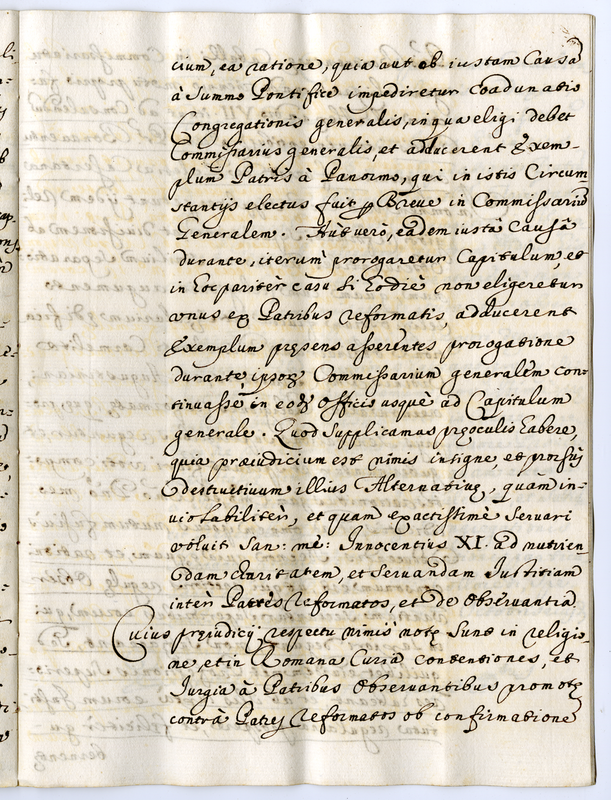 cium, ea ratione, quia aut ob iustam Causã
à Summo Pontifice impediretur Coadunatio
Congregationis generalis, in qua eligi debet
Commissarius generalis, et adducerent Exem-
plum Patris à Panormo, qui in istis Circum
stantijs electus fuit ꝑ Breve in Commissariũ
Generalem. Aut verò, eadem iustâ Causâ
durante, iterùm prorogaretur Capitulum, et
in hoc paritèr casu si hodiè non eligeretur
vnus ex Patribus reformatis, adducerent
Exemplum pręsens asserentes prorogatione
durante ipsoꝝ Commissarium generalem con-
tinuasse in eoꝝ Officio usquè ad Capitulum
generale. Quod supplicamus pręoculis habere,
quia præiudicium est nimis insigne, et prorsùs
destructiuum illius Alternatiuę, quam in-
uiolabilitèr, et quam exactissimè seruari
voluit San: me: Innocentius XI. ad nutrien-
dam Charitatem, et seruandam Justitiam
inter Patres Reformatos, et de Obseruantia.
Cuius pręiudicij respectu nimis notę sunt in religio-
ne, et in Romana Curia contentiones, et
Jurgia à Patribus Obseruantibus promotę
contrà Patres Reformatos ob confirmatione